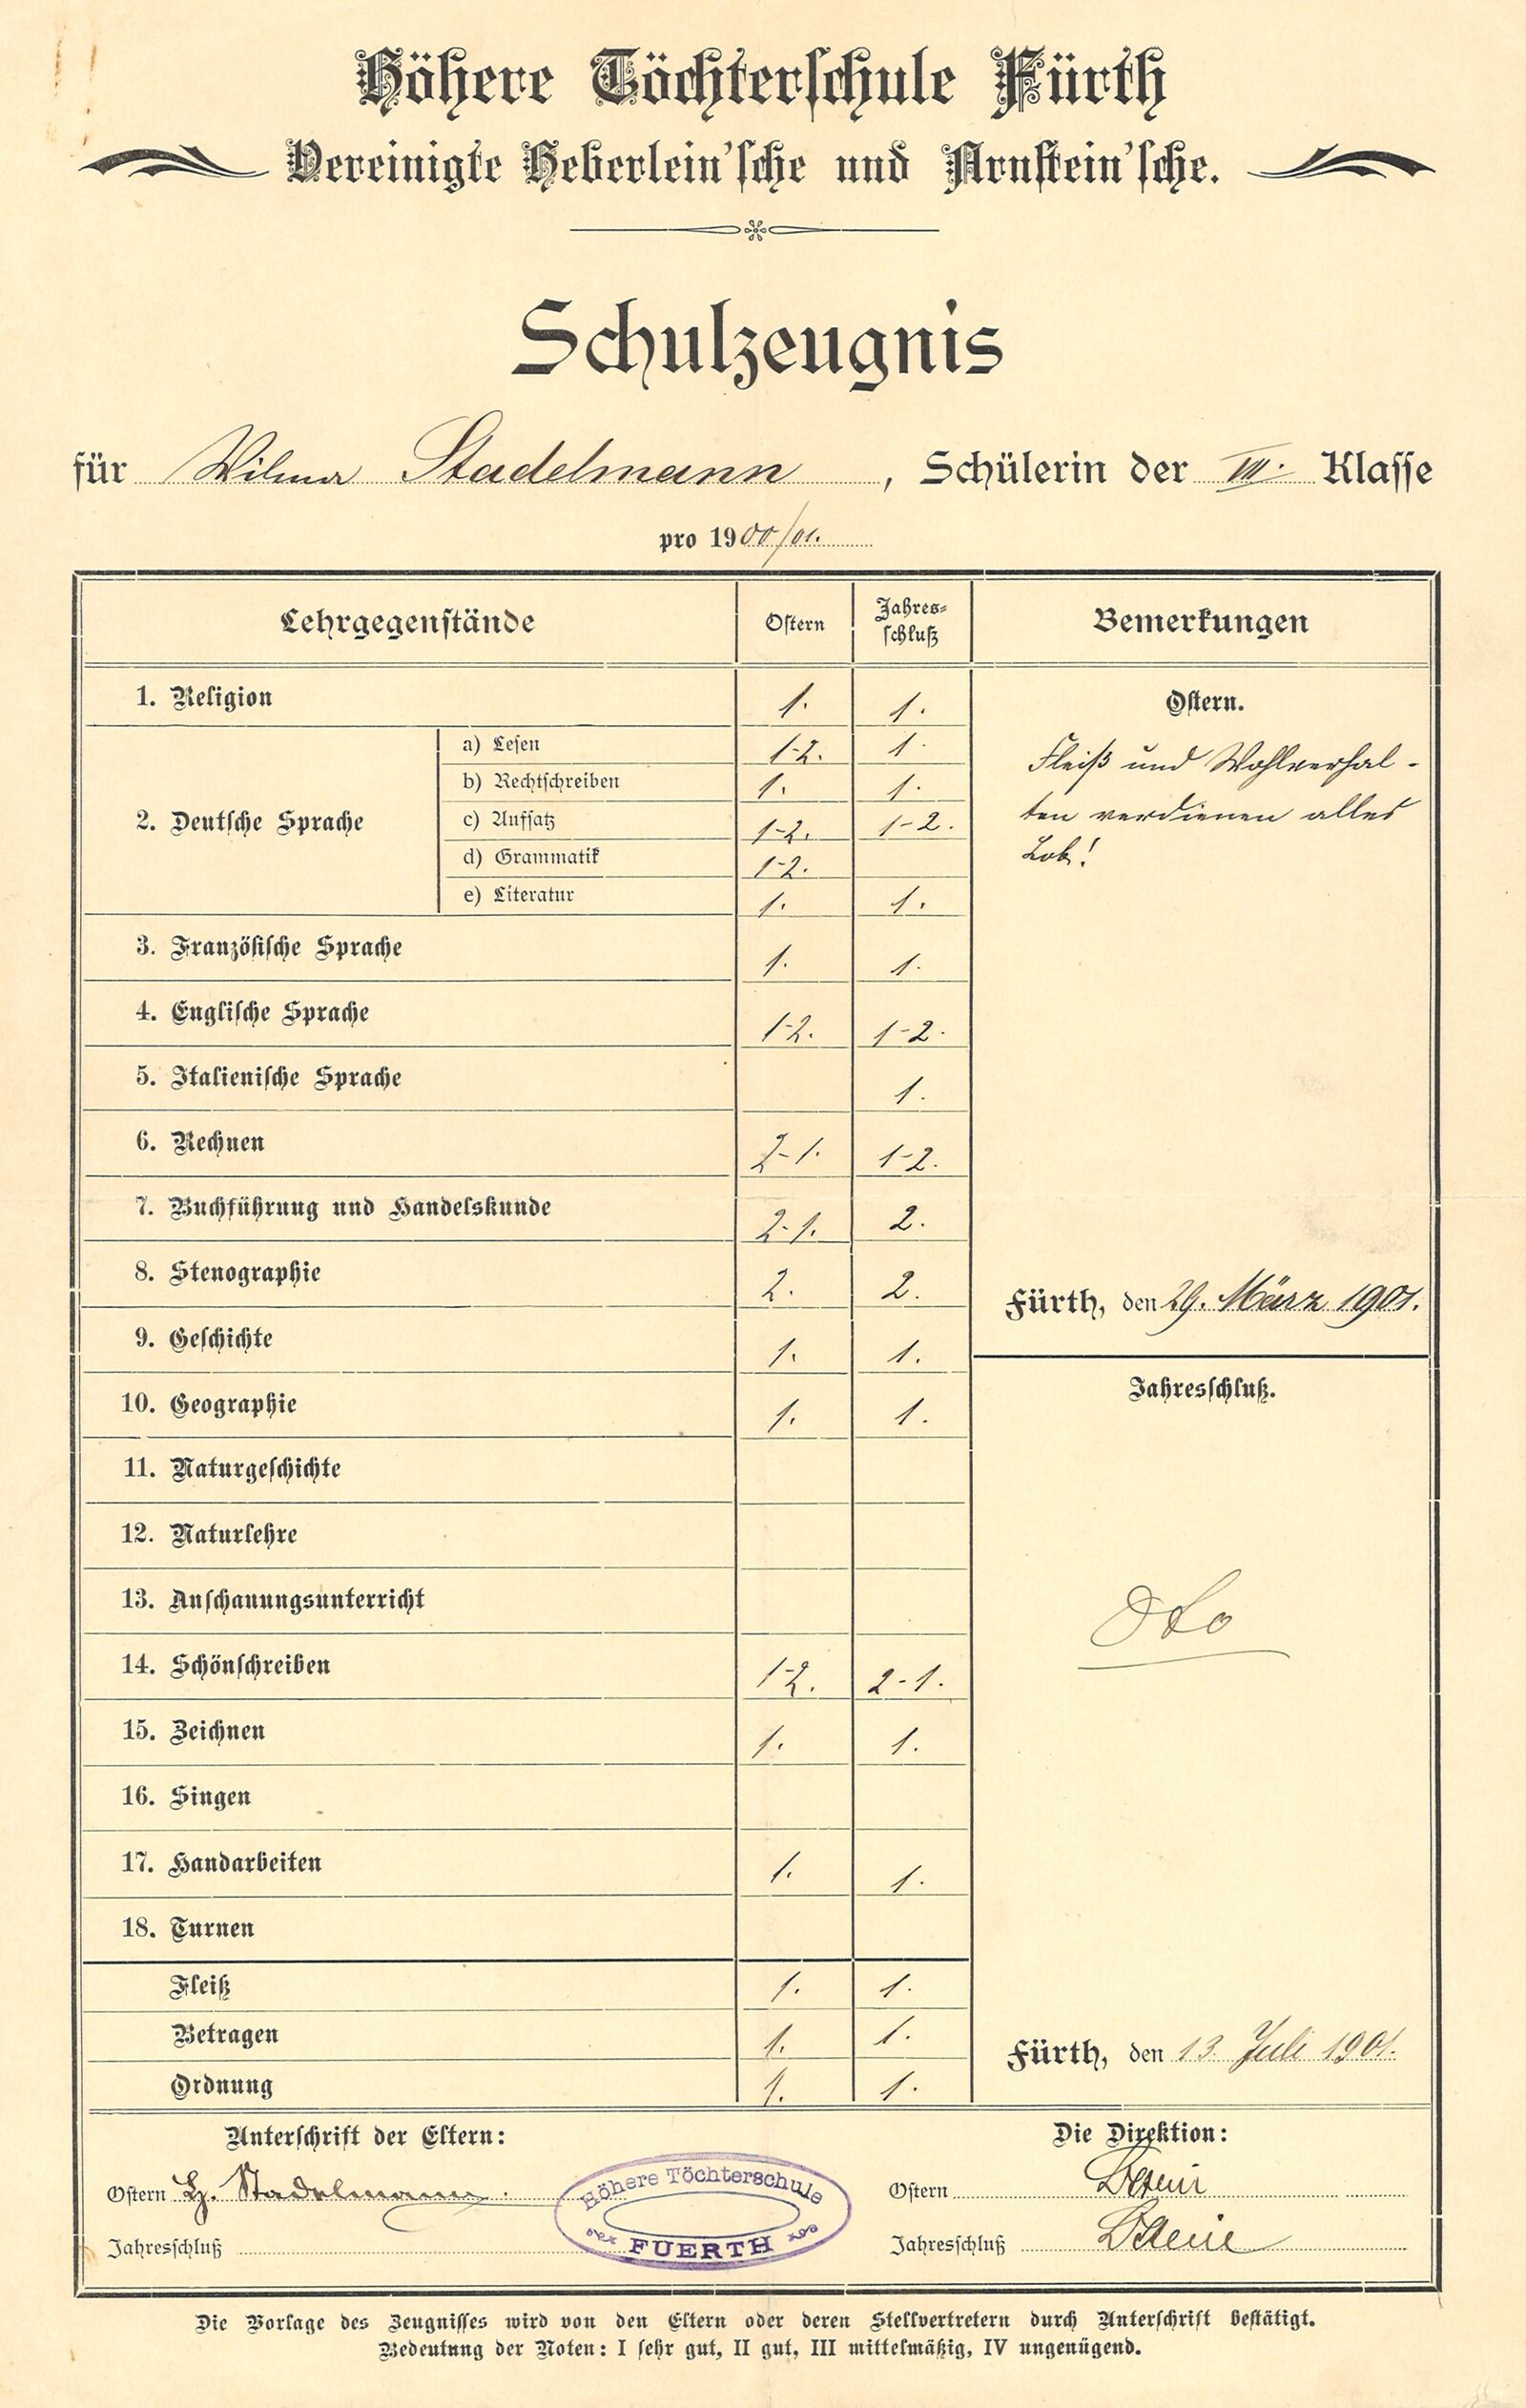 Höhere Töchterschule Fürth
Vereinigte Heberlein'sche und Arnstein'sche.
Schulzeugnis
für Wilma Stadelmann, Schülerin der VII. Klasse
pro 1900/01.
Lehrgegenstände Ostern Jahres-schluß Bemerkungen
1. Religion 1. 1.
2. Deutsche Sprache
a) Lesen 1-2. 1.
b) Rechtschreiben 1. 1.
c) Aufsatz 1-2. 1-2.
d) Grammatik 1-2.
e) Literatur 1. 1.
3. Französische Sprache 1. 1.
4. Englische Sprache 1-2. 1-2.
5. Italienische Sprache 1.
6. Rechnen 2-1. 1-2.
7. Buchführung und Handelskunde 2-1. 2.
8. Stenographie 2. 2.
9. Geschichte 1. 1.
10. Geographie 1. 1.
11. Naturgeschichte
12. Naturlehre
13. Anschauungsunterricht
14. Schönschreiben 1-2. 2-1.
15. Zeichnen 1. 1.
16. Singen
17. Handarbeiten 1. 1.
18. Turnen
Fleiß 1. 1.
Betragen 1. 1.
Ordnung 1. 1.
Ostern.
Fleiß und Wohlverhal-
ten verdienen alles
Lob!
Fürth, den 29. März 1901.
Jahresschluß.
Dto
Fürth, den 13. Juli 1901.
Unterschrift der Eltern:
Ostern H. Stadelmann.
Jahresschluß
Höhere Töchterschule
FUERTH
Die Direktion:
Ostern
Jahresschluß
Die Vorlage des Zeugnisses wird von den Eltern oder deren Stellvertretern durch Unterschrift bestätigt.
Bedeutung der Noten: I sehr gut, II gut, III mittelmäßig, IV ungenügend.